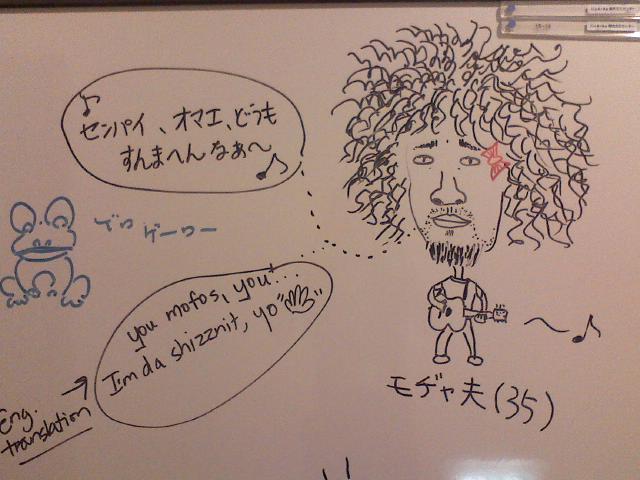 センパイ、オマエ、どうも
すんまへんなぁ〜
ゲーロー
you mofos, you...
I'm da shizznit, yo
Eng.
translation
モヂャ夫(35)